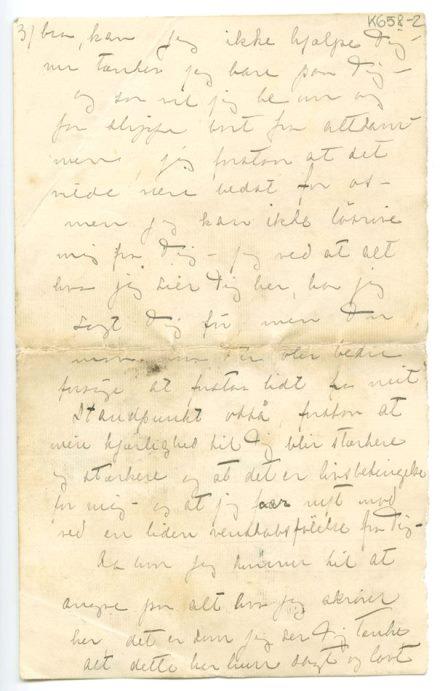 K658-2
3) bra, kan jeg ikke hjælpe Dig –
nu tænker jeg bare paa Dig –
og saa vil jeg be om og
faa slippe bort fra alt
men, jeg forstaar at det
vilde være bedst for os –
men jeg kan ikke løsrive
mig fra Dig – jeg ved at alt
hva jeg sier Dig her, har jeg
sagt Dig før, men Du
maa Du eller bedre
forsøge at forstaa lidt fra mit
Standpunkt også, forstaa at
min kjærlighed til Dig blir stærkere
og stærkere og at det er livsbetingelse
for mig – og at jeg nøjt med
ved en liden venskabsfølelse fra Dig –
Aa om jeg kommer til at
angre paa alt hva jeg skriver
her, det er som jeg ser Dig tænke
alt dette her hun sagt og lovt